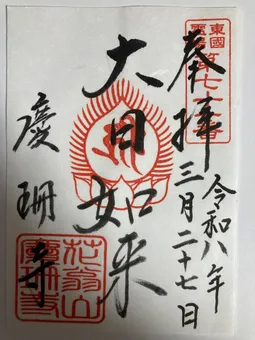 東國
霊場
第七十六番
奉拝
令和八年
三月二十七日
大日如来
慶珊寺
花翁山
慶珊寺